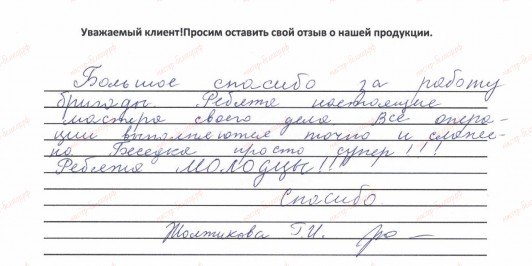 Уважаемый клиент!Просим оставить свой отзыв о нашей продукции.
Большое спасибо за работу
бригады. Ребята настоящие
мастера своего дела. Все опера-
ции выполняются точно и слажен-
но. Беседка просто супер!!!
Ребята МОЛОДЦЫ!!!
Спасибо.
Г.И.